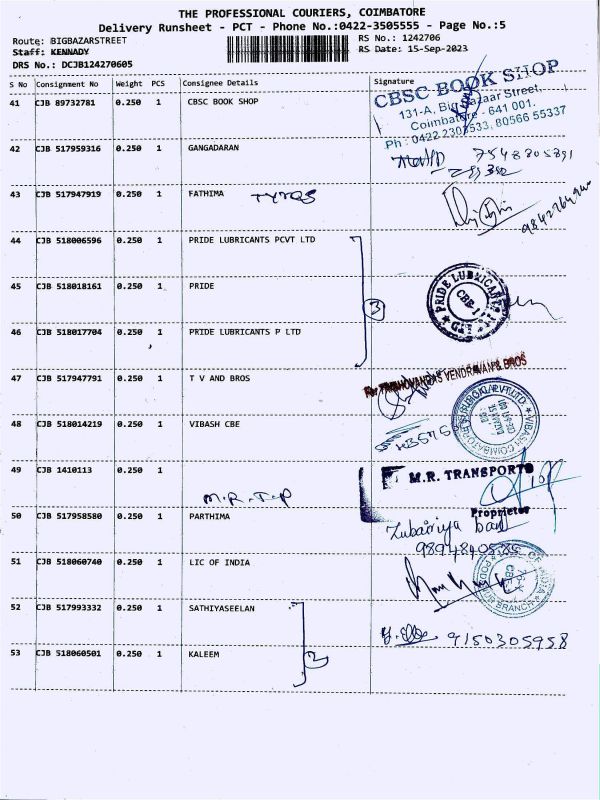 THE PROFESSIONAL COURIERS, COIMBATORE
Delivery Runsheet - PCT - Phone No.:0422-3505555 - Page No.:5
Route: BIGBAZARSTREET RS No.: 1242706
Staff: KENNADY RS Date: 15-Sep-2023
DRS No.: DCJB124270605
S No Consignment No Weight PCS Consignee Details Signature
41 CJB 89732781 0.250 1 CBSC BOOK SHOP
CBSC BOOK SHOP
131-A, Big Bazaar Street,
Coimbatore - 641 001.
Ph : 0422 2303533, 80566 55337
42 CJB 517959316 0.250 1 GANGADARAN
7548805891
43 CJB 517947919 0.250 1 FATHIMA
44 CJB 518006596 0.250 1 PRIDE LUBRICANTS PCVT LTD
45 CJB 518018161 0.250 1 PRIDE
3
PRIDE LUBRICANTS
CBE-1
46 CJB 518017704 0.250 1 PRIDE LUBRICANTS P LTD
47 CJB 517947791 0.250 1 T V AND BROS
For TRIBHOVANDAS VENDRAVAN & BROS
48 CJB 518014219 0.250 1 VIBASH CBE
49 CJB 1410113 0.250 1
M.R. TRANSPORTS
Proprietor
50 CJB 517958580 0.250 1 PARTHIMA
51 CJB 518060740 0.250 1 LIC OF INDIA
52 CJB 517993332 0.250 1 SATHIYASEELAN
9150305958
53 CJB 518060501 0.250 1 KALEEM
2